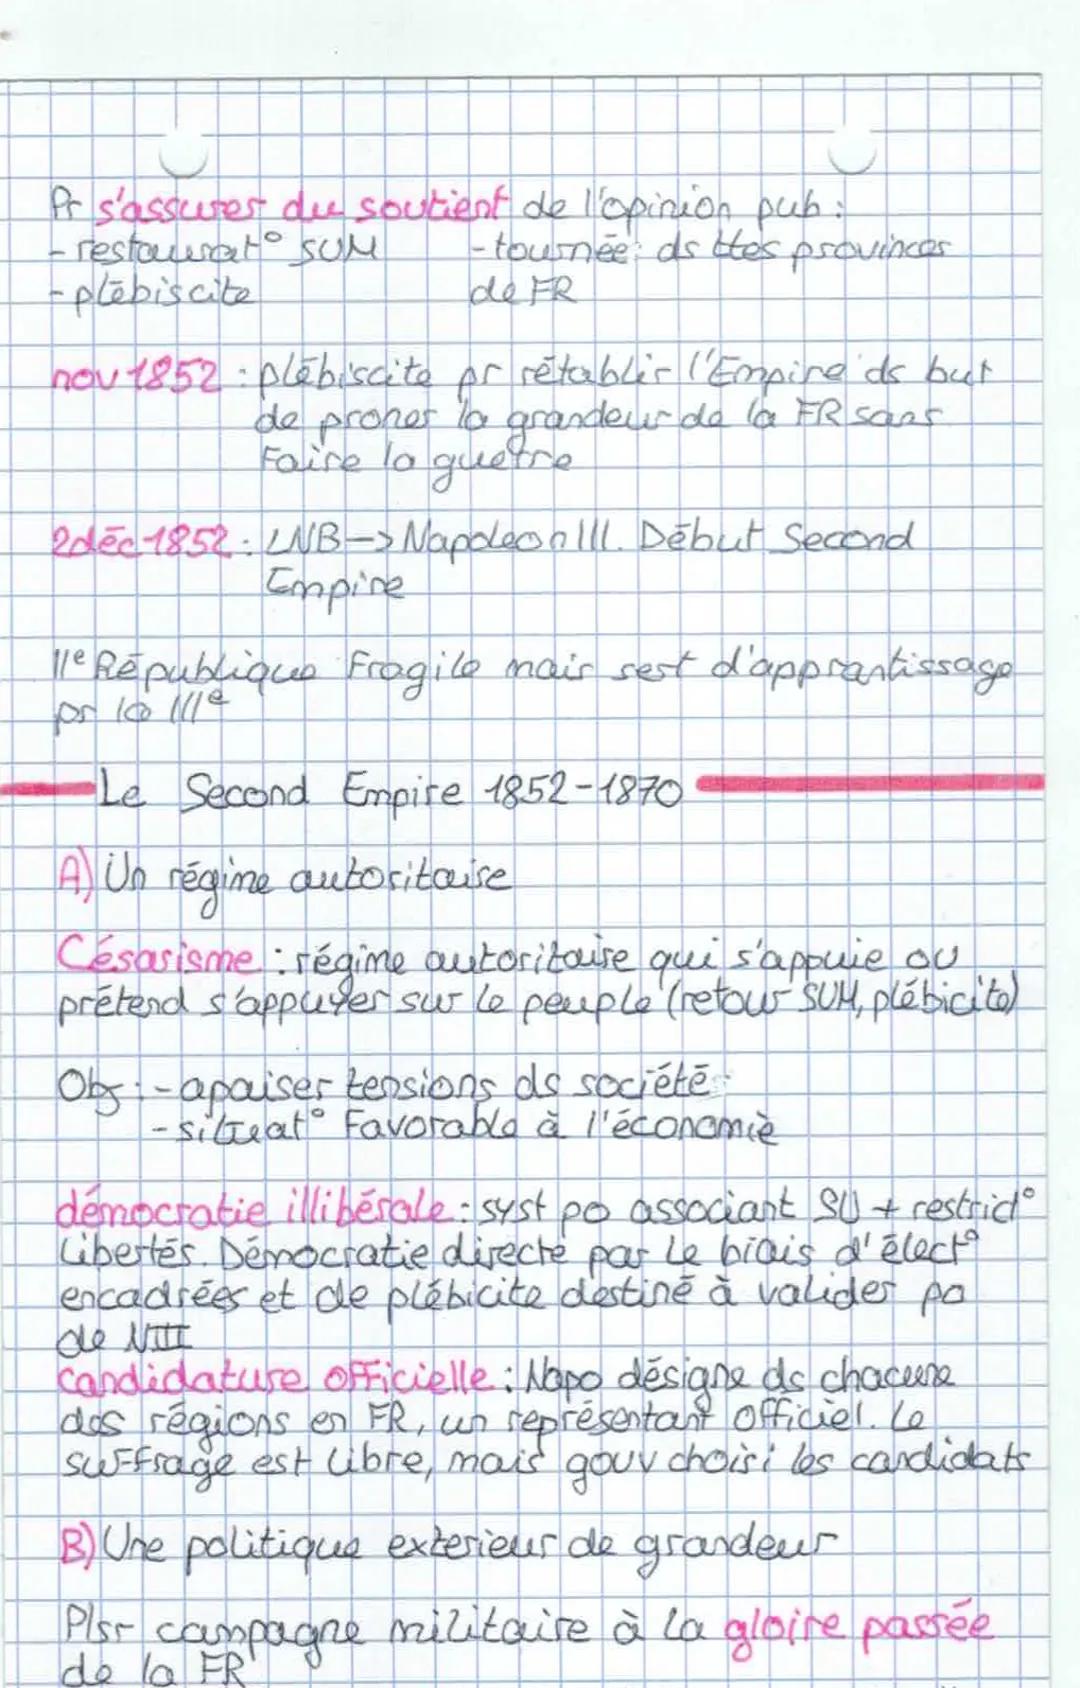 Pr s'assurer du soutient de l'opinion pub :
- restaurat° SUM
- plébiscite
- tournée : ds ttes provinces
de FR
nov 1852 : plébiscite pr rétablir l'Empire ds but
de proner la grandeur de la FR sans
Faire la guerre
2 déc 1852 : LNB -> Napoleon III. Début Second
Empire
IIe République Fragile mais sert d'apprentissage
pr la IIIe
Le Second Empire 1852-1870
A) Un régime autoritaire
Césarisme : régime autoritaire qui s'appuie ou
prétend s'appuyer sur le peuple (retour SUM, plébicite)
Obj : - apaiser tensions ds société
- situat° Favorable à l'économie
démocratie illibérale : syst po associant SU + restrict°
Libertés. Démocratie directe par le biais d'élect°
encadrées et de plébicite destiné à valider po
de NIII
candidature officielle : Napo désigne ds chacune
des régions en FR, un représentant officiel. Le
suffrage est libre, mais gouv choisi les candidats
B) Une politique exterieur de grandeur
Plsr campagne militaire à la gloire passée
de la FR